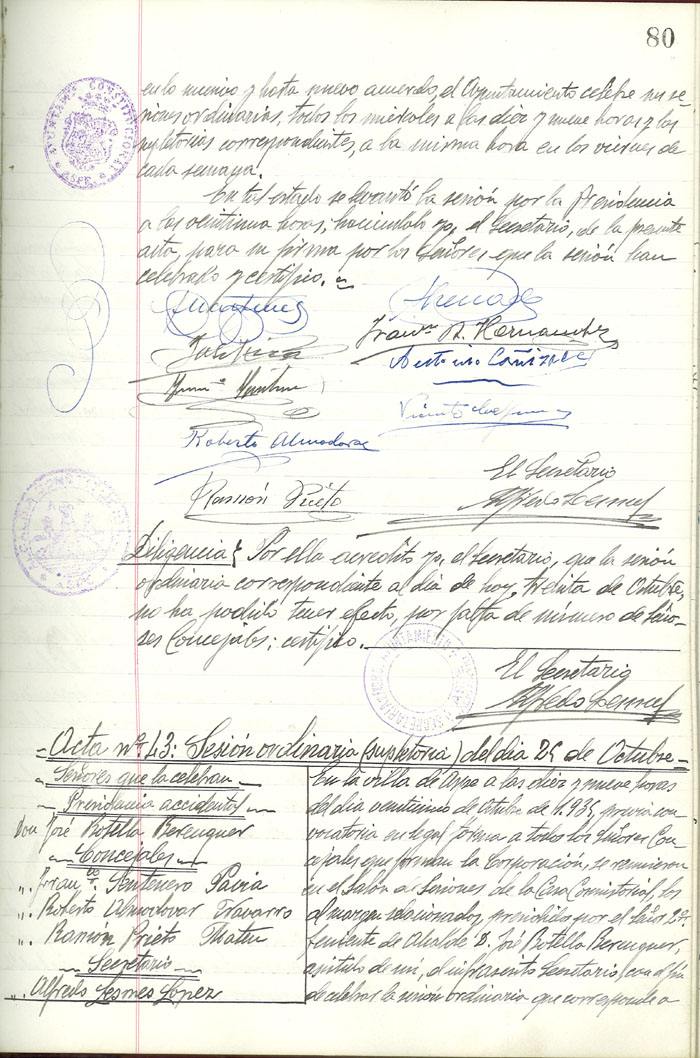 80
en lo sucesivo y hasta nuevo acuerdo, el Ayuntamiento celebre sus se-
siones ordinarias, todos los miércoles a las diez y nueve horas y las
supletorias correspondientes, a la misma hora en los viernes de
cada semana.
En tal estado se levantó la sesión por la Presidencia
a las veintiuna horas; haciéndolo yo, el Secretario, de la presente
acta, para su firma por los Señores que la sesión han
celebrado y certifico.
Fran.co A. Hernandez
Antonio Cañizares
Roberto Almodovar
Ramón Prieto
El Secretario
Alfredo Lesmes
Diligencia Por ella acredito yo, el Secretario, que la sesión
ordinaria correspondiente al día de hoy, de Octubre,
no ha podido tener efecto, por falta de número de Seño-
res Concejales; certifico.
El Secretario
Alfredo Lesmes
Acta nº 43: Sesión ordinaria (supletoria) del día 25 de Octubre
Señores que la celebran
Presidencia accidental
Don José Botella Berenguer
Concejales
„ Fran.co Pavia
„ Roberto Almodovar Navarro
„ Ramón Prieto Mateu
Secretario
„ Alfredo Lesmes López
En la villa de Aspe a las diez y nueve horas
del día de Octubre de 1.935, previa con-
vocatoria en legal forma a todos los Señores Con-
cejales que forman la Corporación, se reunieron
en el Salón de Sesiones de la Casa Consistorial, los
al margen relacionados, presididos por el Señor 2º
Teniente de Alcalde D. José Botella Berenguer,
asistido de mí, el infrascrito Secretario, con el fin
de celebrar la sesión ordinaria que corresponde a